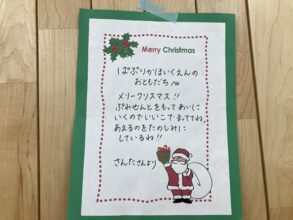 Merry Christmas
ぱぷりかほいくえんの
おともだちへ
メリークリスマス!!
ぷれぜんとをもってあいに
いくのでいいこでまっててね。
あえるのをたのしみに
しているね!!
さんたさんより